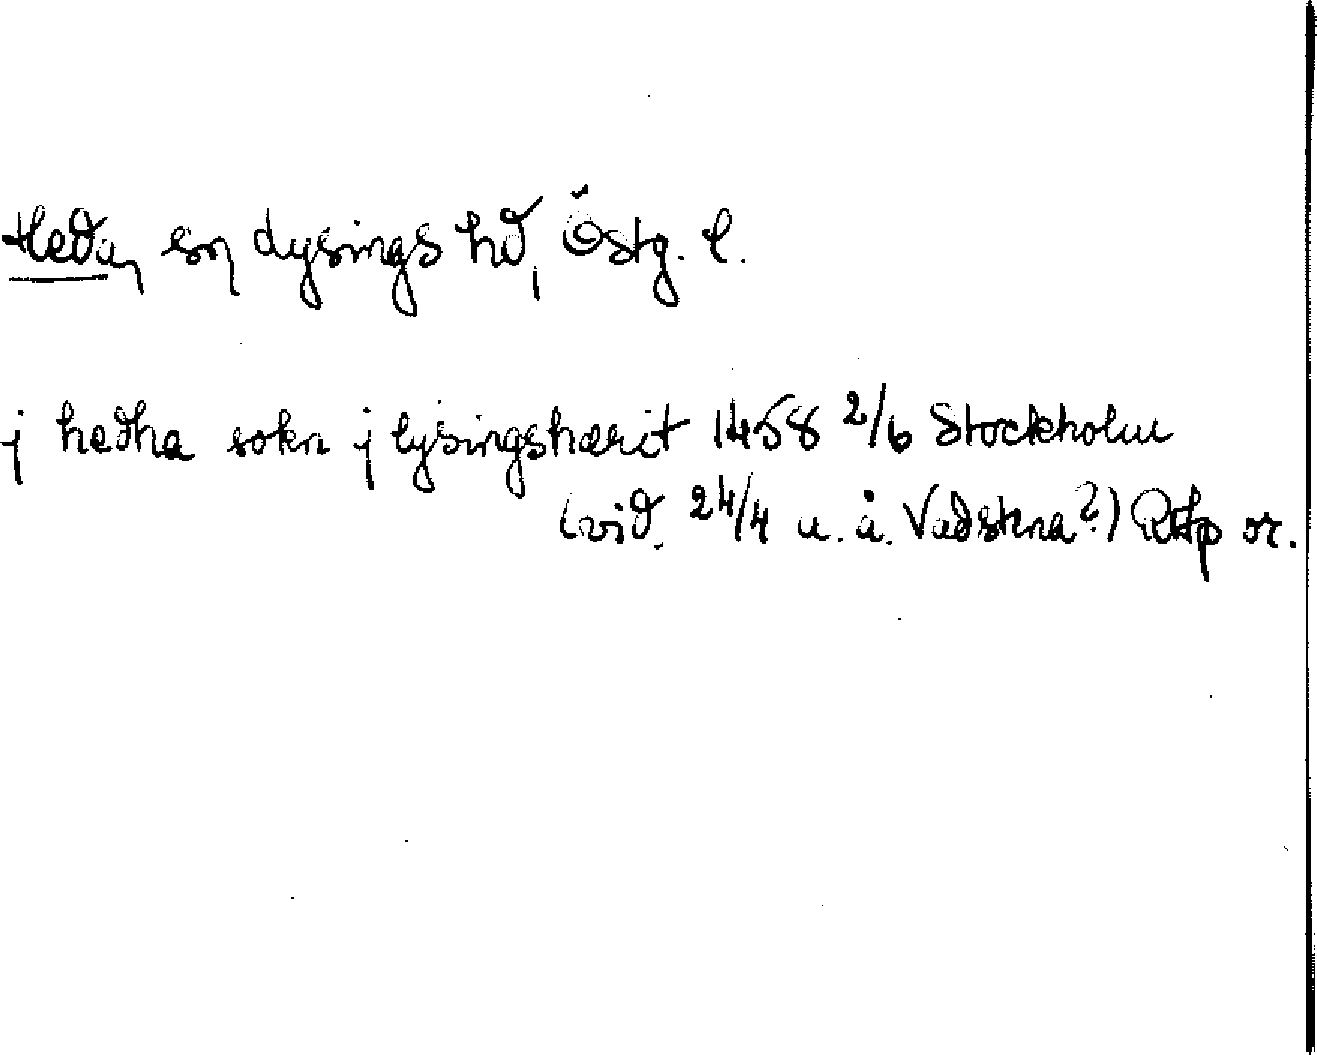 Heda, sn Lysings hd, Östg. l.
j hedha sokn j lysingshærit 1458 2/6 Stockholm
(vid. 24/4 u. å. Vadstena?) RAp or.